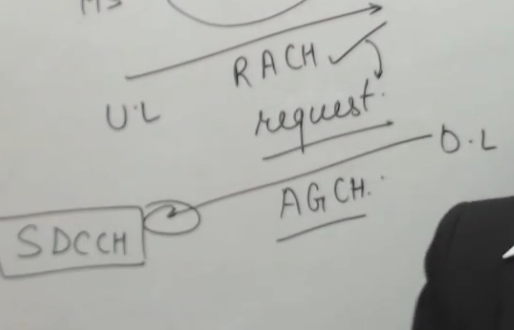 MS
RACH
U.L
request.
D.L
AGCH.
SDCCH